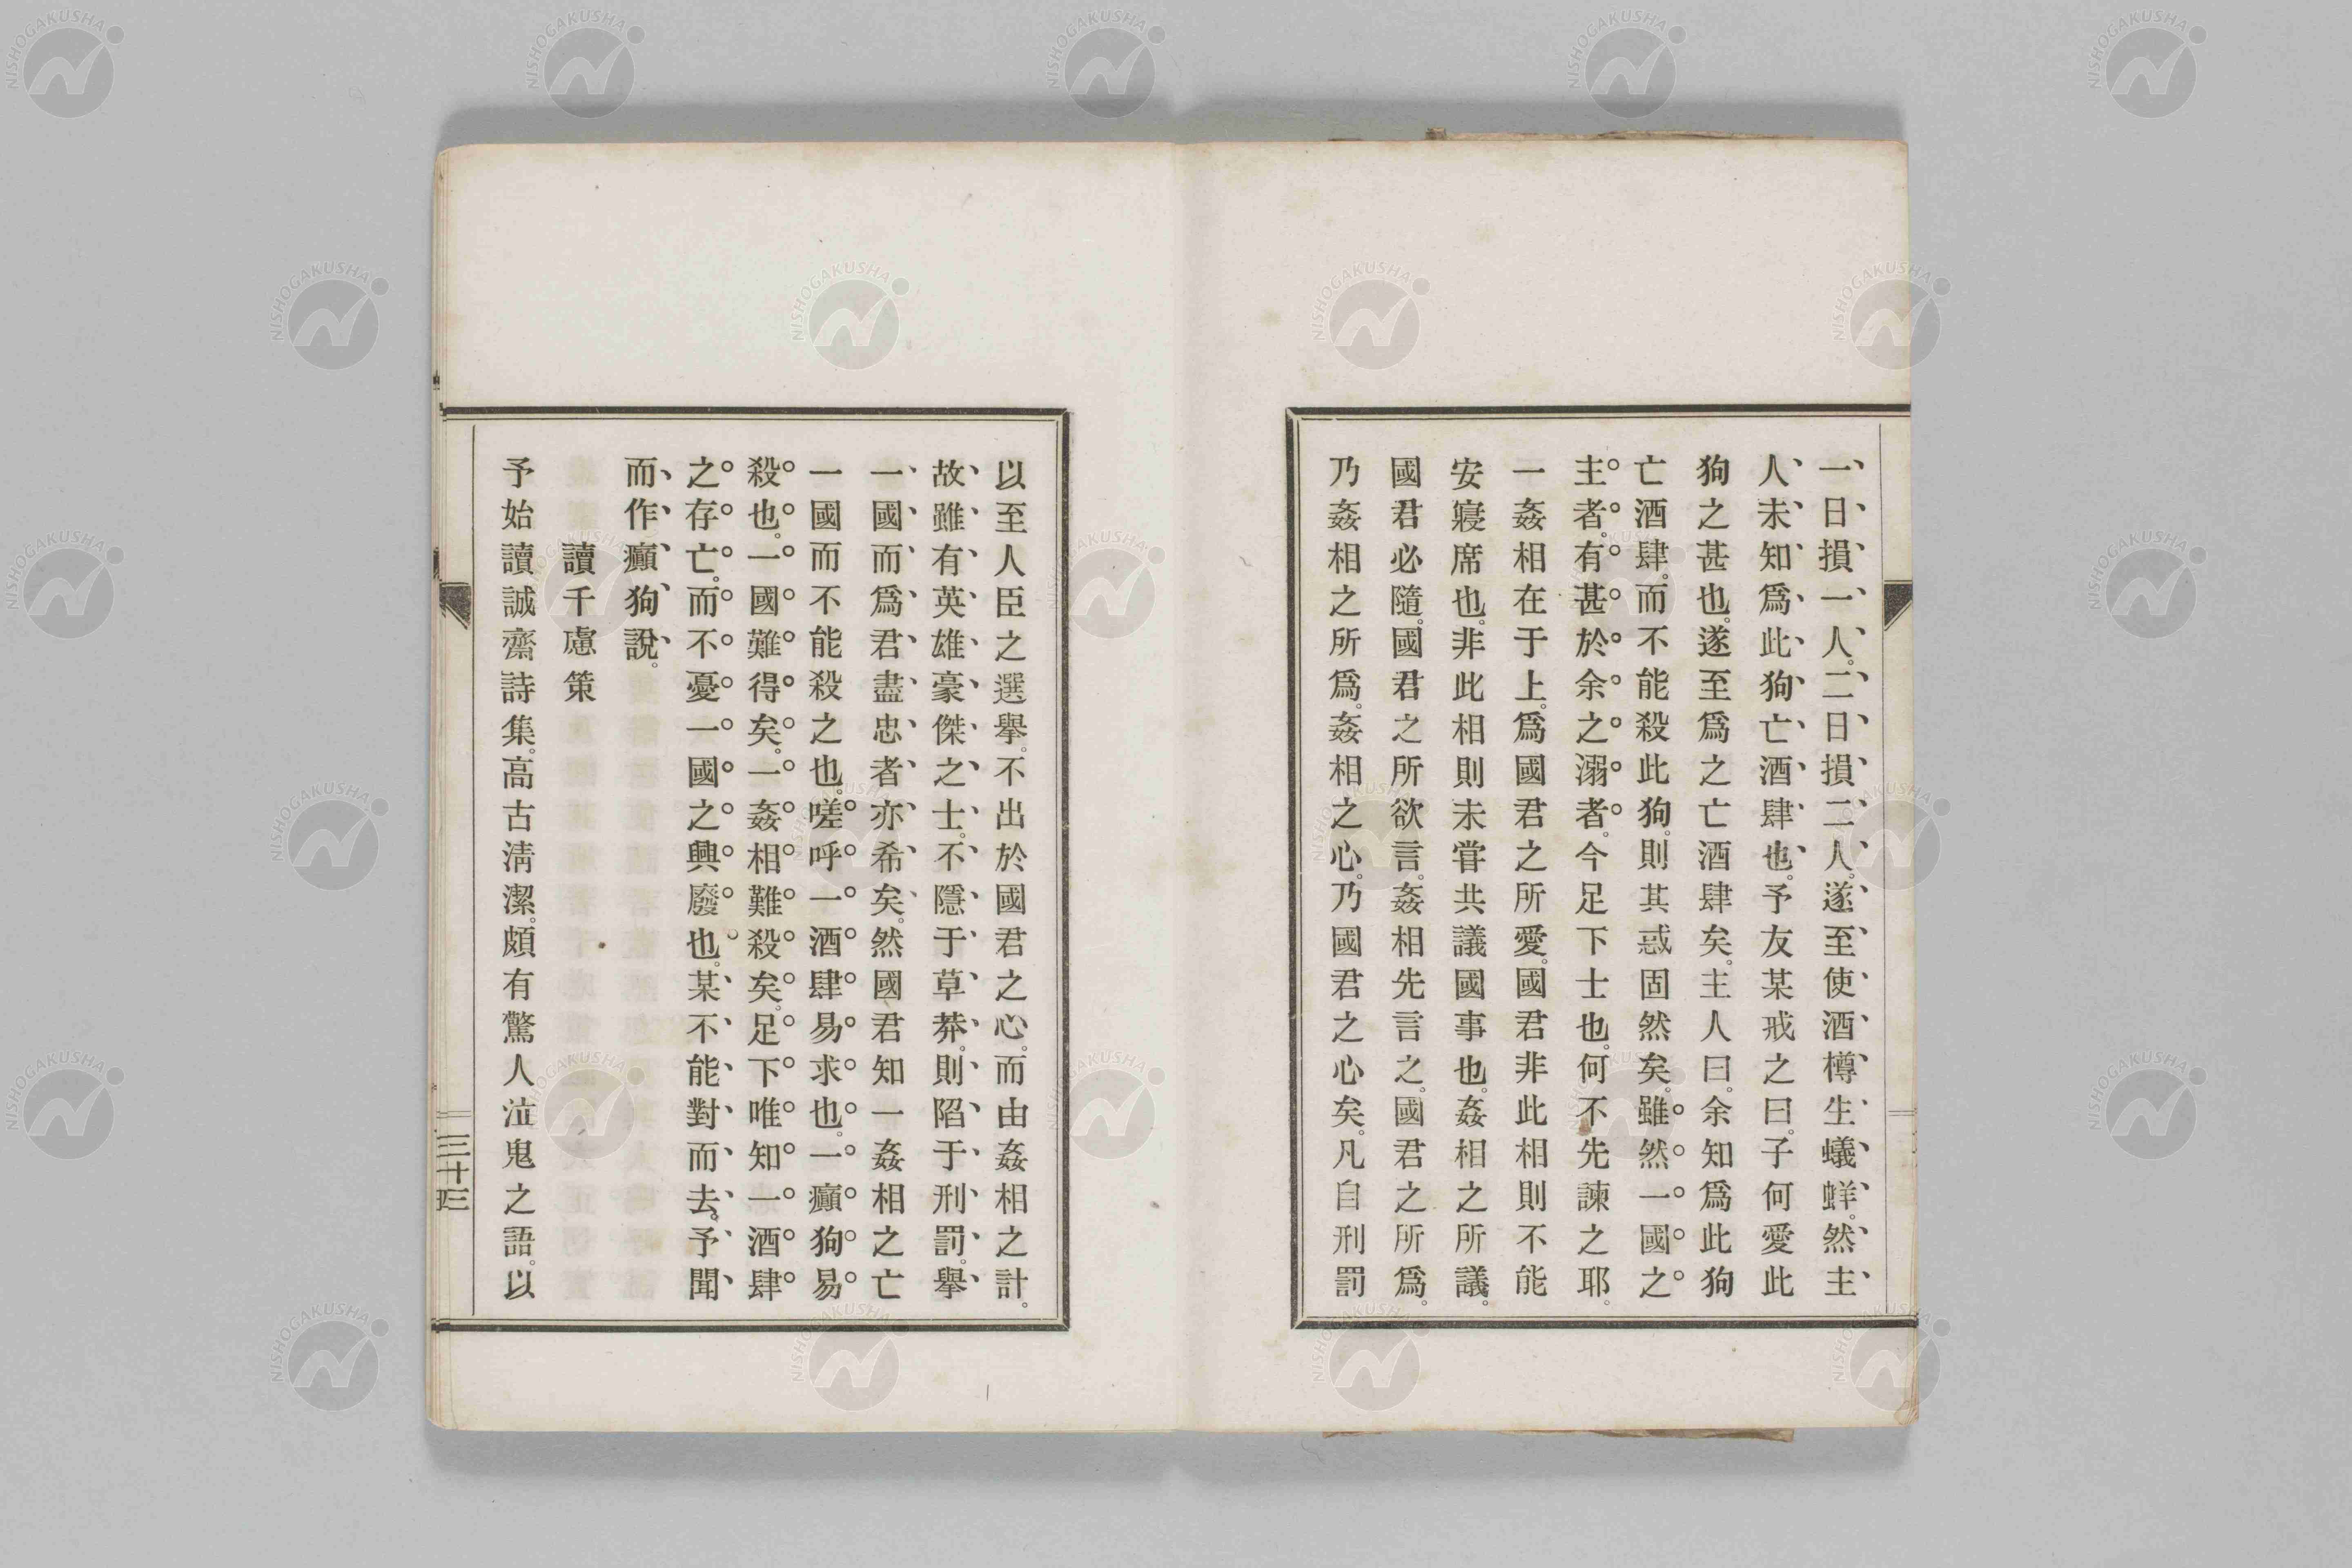 一日損一人。二日損二人。遂至使酒樽生蟻蛘。然主
人未知爲此狗亡酒肆也。予友某戒之曰。子何愛此
狗之甚也。遂至爲之亡酒肆矣。主人曰。余知爲此狗
亡酒肆。而不能殺此狗。則其惑固然矣。雖然一國之
主者。有甚於余之溺者。今足下士也。何不先諫之耶。
一姦相在于上。爲國君之所愛。國君非此相則不能
安寢席也。非此相則未甞共議國事也。姦相之所議。
國君必隨。國君之所欲言。姦相先言之。國君之所爲。
乃姦相之所爲。姦相之心。乃國君之心矣。凡自刑罰
以至人臣之選擧。不出於國君之心。而由姦相之計。
故雖有英雄豪傑之士。不隱于草莽。則陷于刑罰。擧
一國而爲君盡忠者亦希矣。然國君知一姦相之亡
一國而不能殺之也。嗟呼一酒肆易求也。一癲狗易
殺也。一國難得矣。一姦相難殺矣。足下唯知一酒肆
之存亡。而不憂一國之興廢也。某不能對而去。予聞
而作癲狗說。
讀千慮策
予始讀誠齋詩集。高古淸潔。頗有驚人泣鬼之語。以
三十四
NISHOGAKUSHA